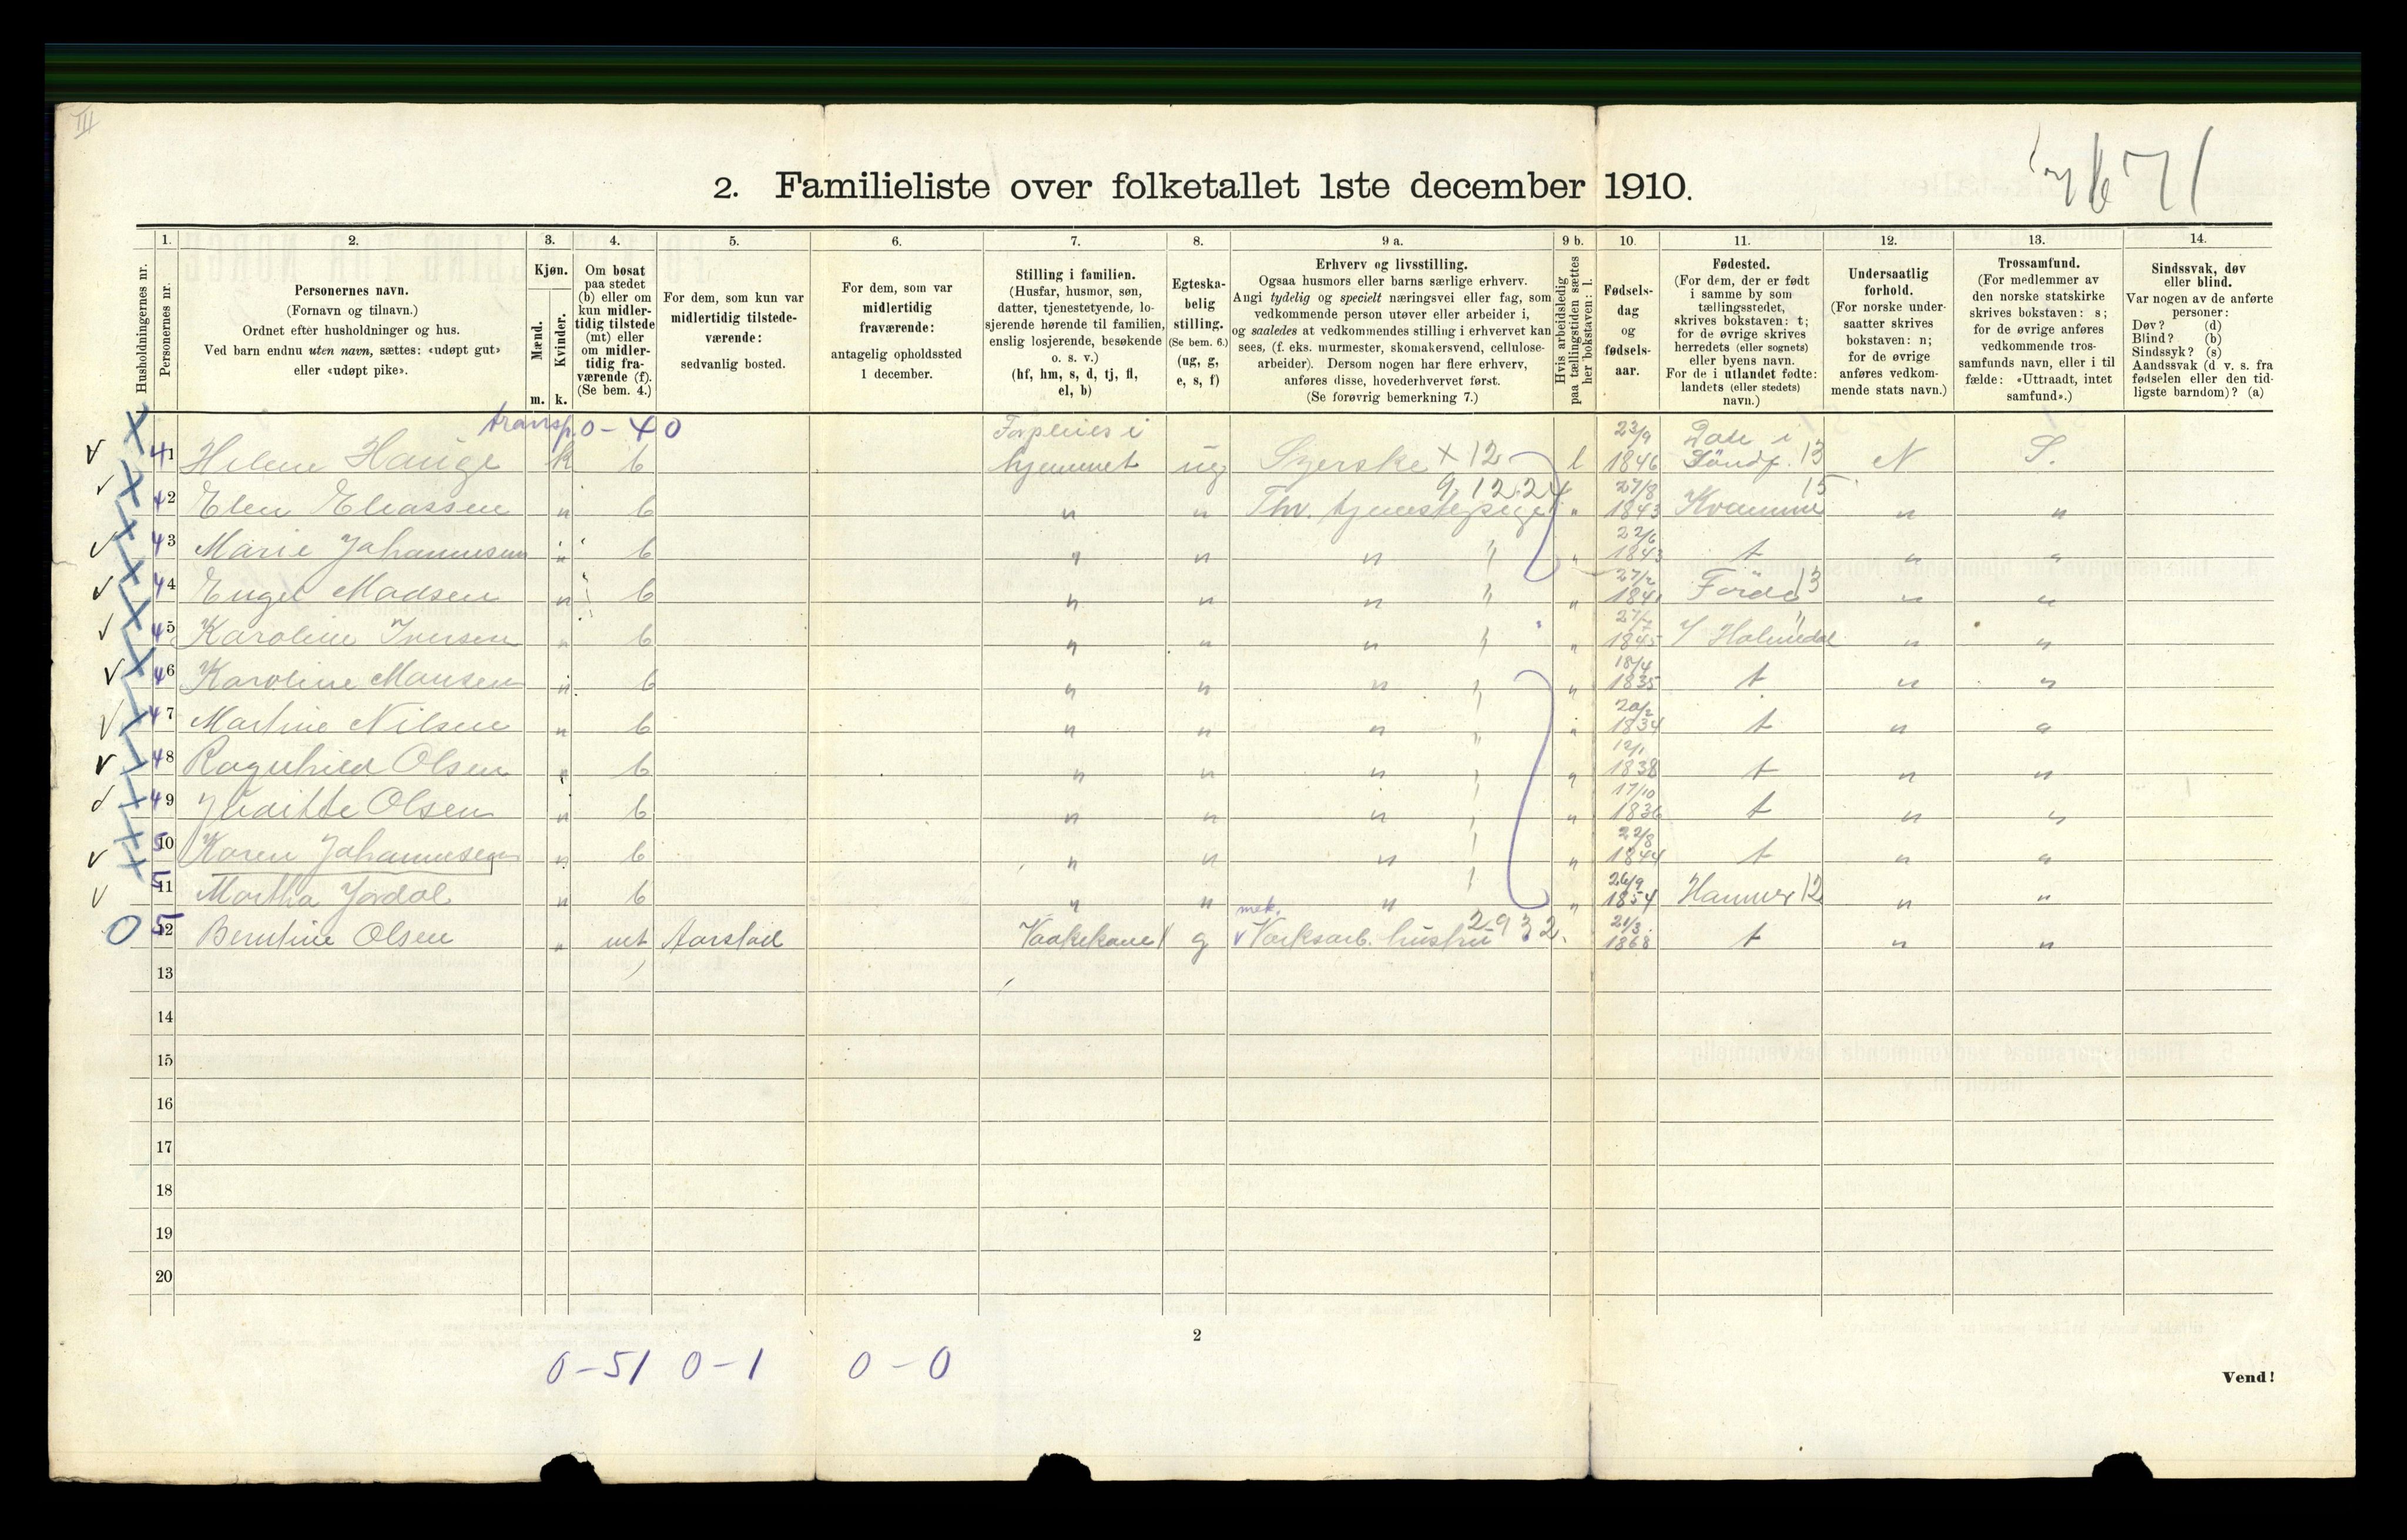 III
2. Familieliste over folketallet 1ste december 1910.
Husholdningernes nr.
1. Personernes nr.
2. Personernes navn.
(Fornavn og tilnavn.)
Ordnet efter husholdninger og hus.
Ved barn endnu uten navn, sættes: «udøpt gut»
eller «udøpt pike».
3. Kjøn.
Mænd. m.
Kvinder. k.
4. Om bosat
paa stedet
(b) eller om
kun midler-
tidig tilstede
(mt) eller
om midler-
tidig fra-
værende (f).
(Se bem. 4.)
5. For dem, som kun var
midlertidig tilstede-
værende:
sedvanlig bosted.
6. For dem, som var
midlertidig
fraværende:
antagelig opholdssted
1 december.
7. Stilling i familien.
(Husfar, husmor, søn,
datter, tjenestetyende, lo-
sjerende hørende til familien,
enslig losjerende, besøkende
o. s. v.)
(hf, hm, s, d, tj, fl,
el, b)
8. Egteska-
belig
stilling.
(Se bem. 6.)
(ug, g,
e, s, f)
9 a. Erhverv og livsstilling.
Ogsaa husmors eller barns særlige erhverv.
Angi tydelig og specielt næringsvei eller fag, som
vedkommende person utøver eller arbeider i,
og saaledes at vedkommendes stilling i erhvervet kan
sees, (f. eks. murmester, skomakersvend, cellulose-
arbeider). Dersom nogen har flere erhverv,
anføres disse, hovederhvervet først.
(Se forøvrig bemerkning 7.)
9 b. Hvis arbeidsledig
paa tællingstiden sættes
her bokstaven: l.
10. Fødsels-
dag
og
fødsels-
aar.
11. Fødested.
(For dem, der er født
i samme by som
tællingsstedet,
skrives bokstaven: t;
for de øvrige skrives
herredets (eller sognets)
eller byens navn.
For de i utlandet fødte:
landets (eller stedets)
navn.)
12. Undersaatlig
forhold.
(For norske under-
saatter skrives
bokstaven: n;
for de øvrige
anføres vedkom-
mende stats navn.)
13. Trossamfund.
(For medlemmer av
den norske statskirke
skrives bokstaven: s;
for de øvrige anføres
vedkommende tros-
samfunds navn, eller i til-
fælde: «Uttraadt, intet
samfund».)
14. Sindssvak, døv
eller blind.
Var nogen av de anførte
personer:
Døv? (d)
Blind? (b)
Sindssyk? (s)
Aandssvak (d. v. s. fra
fødselen eller den tid-
ligste barndom)? (a)
transp. 0-40
41 Helene Hauge k b Forpleies i hjemmet ug Syerske x 12 l 23/9 1846 13 N S.
42 Elen Eliassen " b " " Thv. tjenestepige 9,12.24 " 27/8 1843 Kvamme 15 " "
43 Marie Johannesen " b " " " " " 22/6 1843 t " "
44 Engel Madsen " b " " " " " 27/2 1841 Förde 13 " "
45 Karoline Iversen " b " " " " " 1845 Y Holmedal " " "
46 Karoline Monsen " b " " " " " 18/4 1835 t " "
47 Martine Nilsen " b " " " " " 20/2 1834 t " "
48 Ragnhild Olsen " b " " " " " 12/1 1838 t " "
49 Olsen " b " " " " " 17/10 1836 t " "
50 Karen Johannesen " b " " " " " 22/8 1844 t " "
51 Martha Jordal " b " " " " " 26/9 1854 Hammer 12 " "
52 Berntine Olsen " mt Aarstad Vaakekone g mek. Værksarb. hustru 2932. 21/3 1868 t " "
13
14
15
16
17
18
19
20
2
0-51 0-1 0-0
Vend!